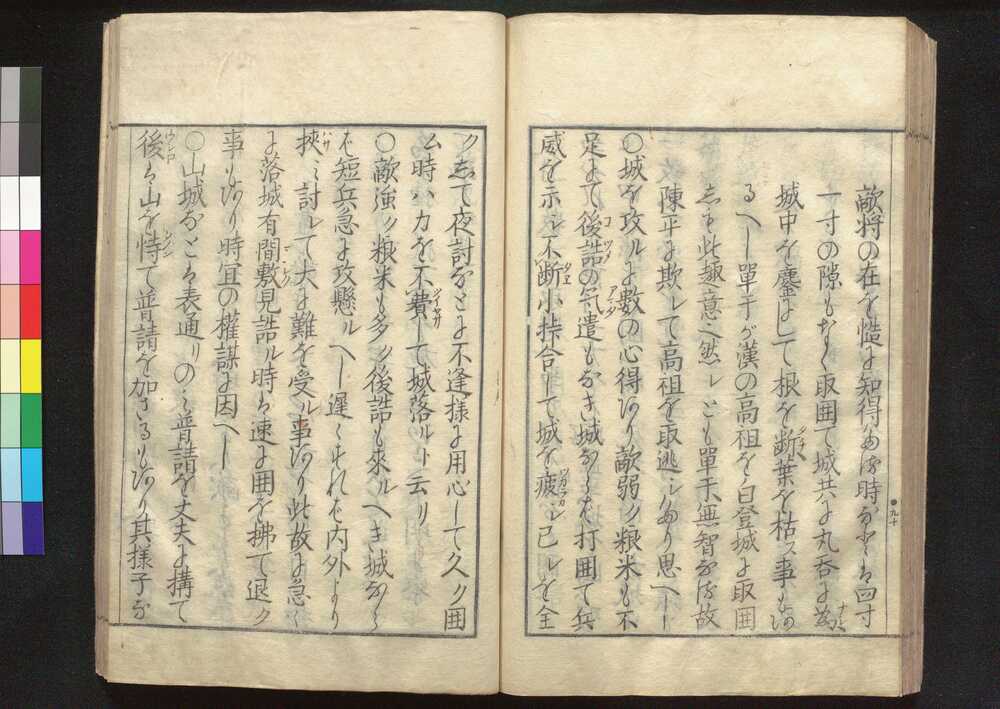 敵将の在を慥に知得たる時などは四寸
一寸の隙もなく取囲て城共に丸呑に為
城中を鏖にして根を断葉を枯ス事もあ
るへし單于が漢の高祖を白登城に取囲
しも此趣意之然レとも單于無智なる故
陳平に欺レて高祖を取逃シたり思へし
○城を攻ルに数の心得あり敵弱ク粮米も不
足にて後詰の気遣もなき城ならば打囲て兵
威を示シ不断小合して城を疲シ已レを全
クして夜討などに不逢様に用心して久ク囲
ム時ハ力を不費して城落ルト云リ
○敵強ク粮米も多ク後詰も来ルへき城なら
ば短兵急に攻懸ルへし遅くすれば内外より
挾ミ討レて大に難を受ル事あり此故に急く
に落城有間敷見詰ル時は速に囲を拂て退ク
事もあり時宜の權謀に因へし
○山城などは表通リのミ普請を丈夫に構て
後は山を恃て普請を加さるもあり其様子な
●九十